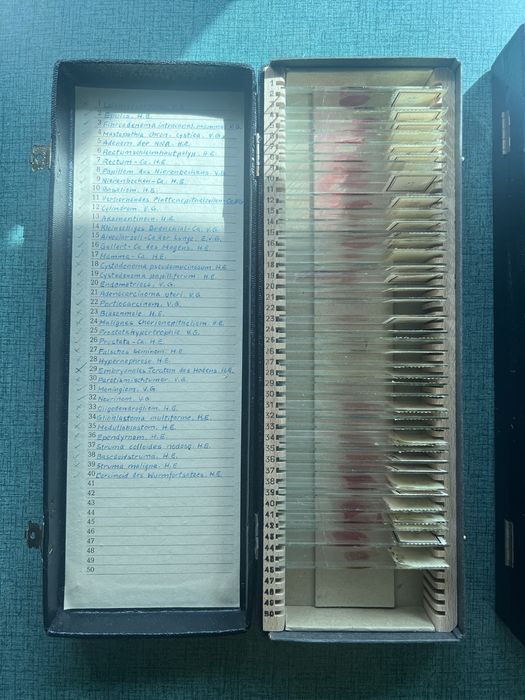 1
2 Epulis, H.E.
3 Fibroadenoma intracanal. mammae, V.G.
4 Mastopathia chron. cystica, V.G.
5 Adenom der NNR. H.E.
6 Rectumschleimhautpolyp, H.E.
7 Rectum-Ca. H.E.
8 Papillom des Nierenbeckens, V.G.
9 Nierenbecken-Ca. H.E.
10 Basaliom, H.E.
11 Verhornendes Plattenepithelcarcinom
12 Cylindrom, V.G.
13 Adamantinom, H.E.
14 Kleinzelliges Bronchial-Ca, V.G.
15 Alveolarzell-Ca der Lunge, E.v.G.
16 Gallert-Ca des Magens, H.E.
17 Mamma-Ca. H.E.
18 Cystadenoma pseudomucinosum, H.E.
19 Cystadenoma papilliferum, H.E.
20 Endometriose, V.G.
21 Adenocarcinoma uteri, V.G.
22 Portiocarcinom, V.G.
23 Blasenmole, H.E.
24 Malignes Chorionepitheliom, H.E.
25 Prostatahypertrophie, V.G.
26 Prostata-Ca. H.E.
27 Falsches Seminom, H.E.
28 Hypernephrom, H.E.
29 Embryonales Teratom des Hodens, H.E.
30 Parotismischtumor, V.G.
31 Meningiom, V.G.
32 Neurinom, V.G.
33 Oligodendrogliom, H.E.
34 Glioblastoma multiforme, H.E.
35 Medulloblastom, H.E.
36 Ependymom, H.E.
37 Struma colloides nodosa, H.E.
38 Basedowstruma, H.E.
39 Struma maligna, H.E.
40 Carcinoid des Wurmfortsatzes, H.E.
41
42
43
44
45
46
47
48
49
50
1
2
3
4
5
6
7
8
9
10
11
12
13
14
15
16
17
18
19
20
21
22
23
24
25
26
27
28
29
30
31
32
33
34
35
36
37
38
39
40
41
42
43
44
45
46
47
48
49
50